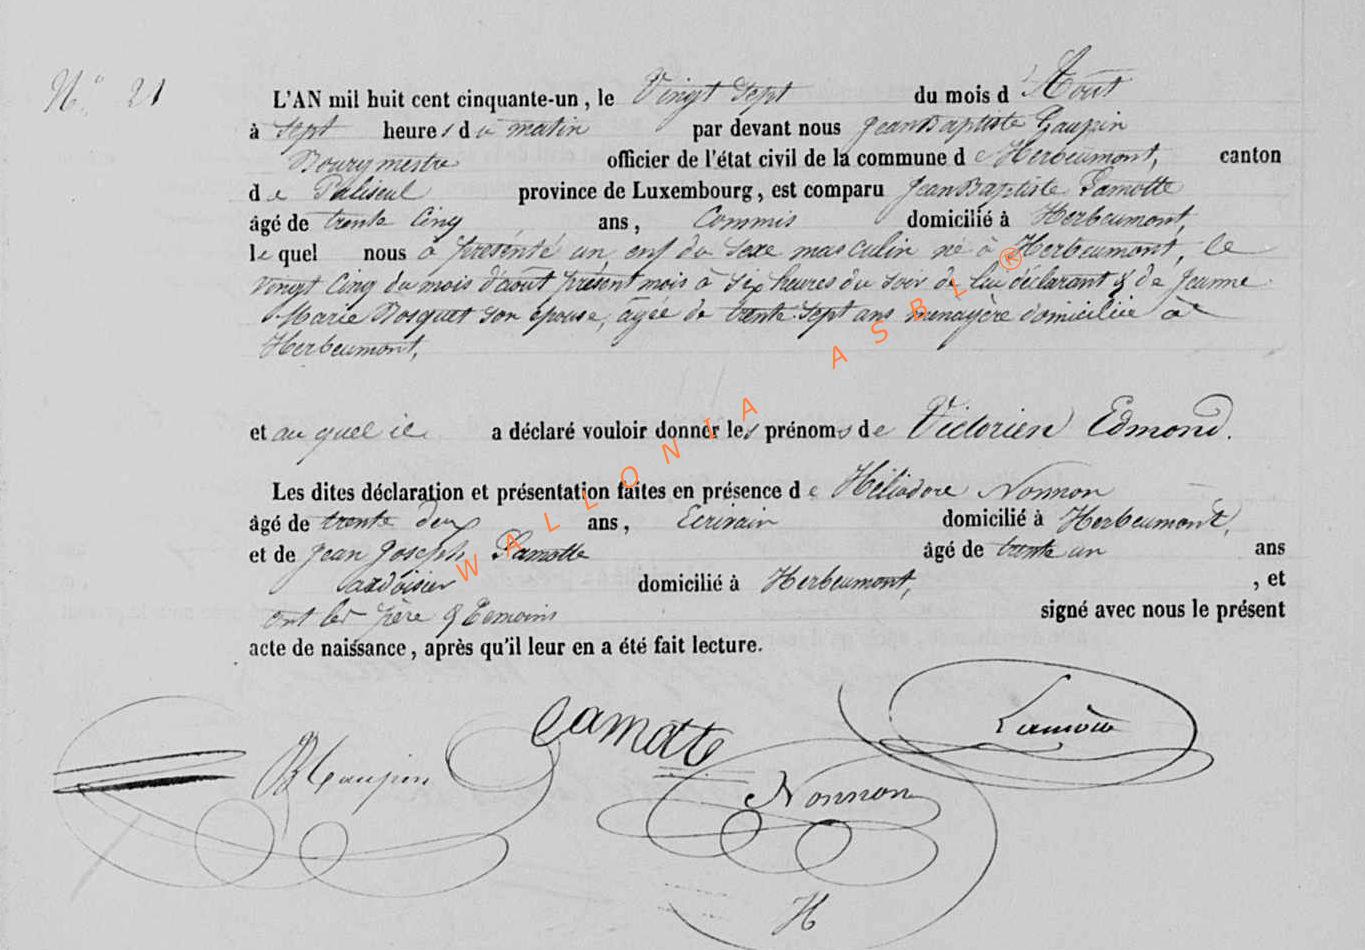 N° 21
L'AN mil huit cent cinquante-un, le Vingt Sept du mois d'Août
à Sept heures du matin par devant nous Jean Baptiste Gaupin
Bourgmestre officier de l'état civil de la commune de Herbeumont, canton
de Paliseul province de Luxembourg, est comparu Jean Baptiste Lamotte
âgé de trente Cinq ans, Commis domicilié à Herbeumont,
lequel nous a présenté un enf du sexe masculin né à Herbeumont, le
vingt Cinq du mois d'août présent mois à six heures du soir de lui déclarant & de Jeanne
Marie Bosquet son épouse, âgée de trente sept ans menagère domiciliée à
Herbeumont,
et au quel il a déclaré vouloir donner les prénoms de Victorien Edmond.
Les dites déclaration et présentation faites en présence de Héliodore Nonnon
âgé de trente deux ans, Ecrivain domicilié à Herbeumont,
et de Jean Joseph Lamotte âgé de trente un ans
ardoisier domicilié à Herbeumont, , et
ont les père & témoins signé avec nous le présent
acte de naissance, après qu'il leur en a été fait lecture.
Lamotte
Lamotte
Gaupin
Nonnon
H
WALLONIA ASBL ®